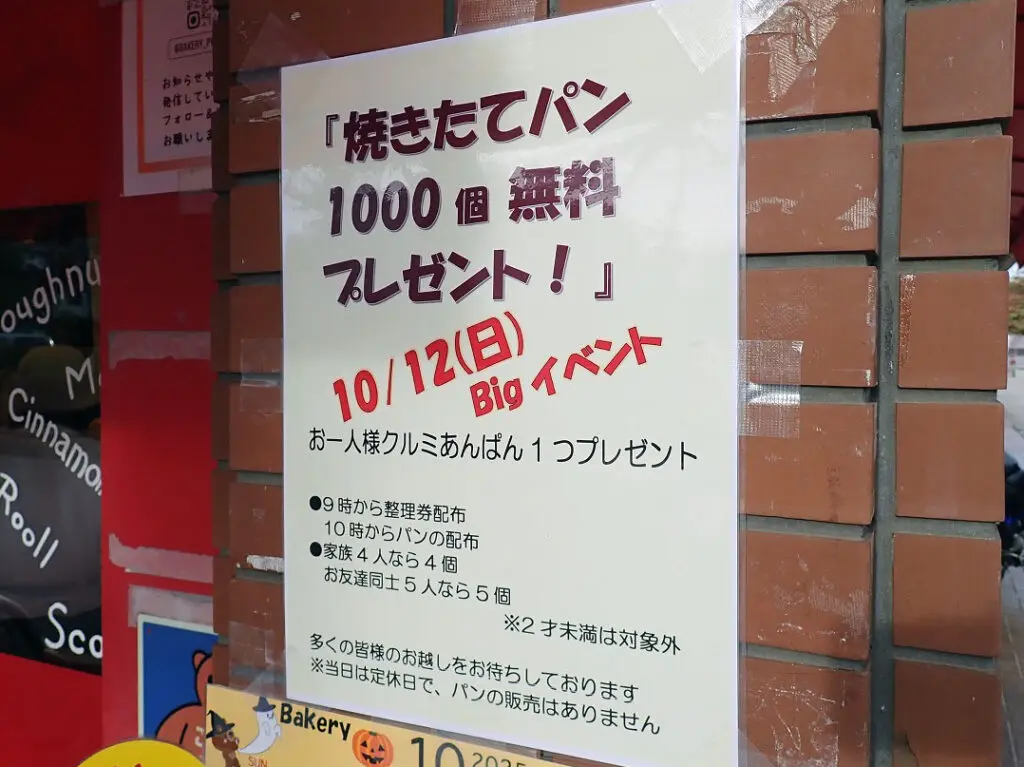 @BAKERY_P
お知らせや
発信してい
フォロー&
お願いしま
『焼きたてパン
1000個 無料
プレゼント!』
10/12(日)
Big イベント
お一人様クルミあんぱん1つプレゼント
●9時から整理券配布
10時からパンの配布
●家族4人なら4個
お友達同士5人なら5個
※2才未満は対象外
多くの皆様のお越しをお待ちしております
※当日は定休日で、パンの販売はありません
oughnu
M
Cinnamon
Rooll
Sco
Bakery
10 2025
SUN